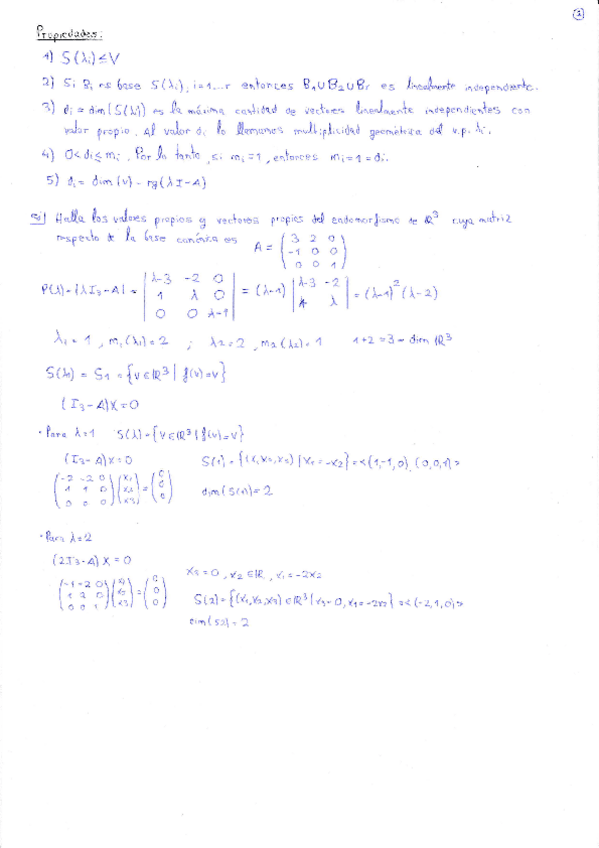 2
Propiedades:
1) S(λi) ≤ V
2) Si Bi es base S(λi), i=1...r entonces B1∪B2∪Br es linealmente independiente.
3) di = dim(S(λi)) es la máxima cantidad de vectores linealmente independientes con
valor propio. Al valor di lo llamamos multiplicidad geométrica del v.p. λi.
4) 0<di≤mi. Por lo tanto, si mi=1, entonces mi=1=di.
5) di = dim(V) - rg(λI-A)
Halla los valores propios y vectores propios del endomorfismo de ℝ³ cuya matriz
respecto de la base canónica es A = (3 2 0; -1 0 0; 0 0 1)
P(λ)=|λI3-A| = |λ-3 -2 0; 1 λ 0; 0 0 λ-1| = (λ-1) |λ-3 -2; 1 λ| = (λ-1)²(λ-2)
λ1=1, m1(λ1)=2 ; λ2=2, m2(λ2)=1 1+2=3=dim ℝ³
S(λ1) = S1 = {v∈ℝ³ | f(v)=v}
(I3-A)X=0
· Para λ=1 S(λ)={v∈ℝ³ | f(v)=v}
(I3-A)X=0 S(1) = {(x1,x2,x3) | x1=-x2} = <(1,-1,0), (0,0,1)>
(-2 -2 0; 1 1 0; 0 0 0)(x1; x2; x3)=(0; 0; 0) dim(S(1))=2
· Para λ=2
(2I3-A)X=0
(-1 -2 0; 1 2 0; 0 0 1)(x1; x2; x3)=(0; 0; 0) x3=0, x2∈ℝ, x1=-2x2
S(2)={(x1,x2,x3)∈ℝ³ | x3=0, x1=-2x2} = <(-2,1,0)>
dim(S2)=2